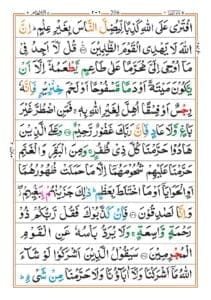 افْتَرٰى عَلَى اللّٰهِ كَذِبًا لِّیُضِلَّ النَّاسَ بِغَیْرِ عِلْمٍ ؕ اِنَّ
اللّٰهَ لَا یَهْدِی الْقَوْمَ الظّٰلِمِیْنَ ۝ قُلْ لَّاۤ اَجِدُ فِیْ
مَاۤ اُوْحِیَ اِلَیَّ مُحَرَّمًا عَلٰى طَاعِمٍ یَّطْعَمُهٗۤ اِلَّاۤ اَنْ
یَّكُوْنَ مَیْتَةً اَوْ دَمًا مَّسْفُوْحًا اَوْ لَحْمَ خِنْزِیْرٍ فَاِنَّهٗ
رِجْسٌ اَوْ فِسْقًا اُهِلَّ لِغَیْرِ اللّٰهِ بِهٖ ۚ فَمَنِ اضْطُرَّ غَیْرَ
بَاغٍ وَّلَا عَادٍ فَاِنَّ رَبَّكَ غَفُوْرٌ رَّحِیْمٌ ۝ وَعَلَى الَّذِیْنَ هَادُوْا
حَرَّمْنَا كُلَّ ذِیْ ظُفُرٍ ۚ وَمِنَ الْبَقَرِ وَالْغَنَمِ
حَرَّمْنَا عَلَیْهِمْ شُحُوْمَهُمَاۤ اِلَّا مَا حَمَلَتْ ظُهُوْرُهُمَاۤ
اَوِ الْحَوَایَاۤ اَوْ مَا اخْتَلَطَ بِعَظْمٍ ؕ ذٰلِكَ جَزَیْنٰهُمْ بِبَغْیِهِمْ ۖ
وَاِنَّا لَصٰدِقُوْنَ ۝ فَاِنْ كَذَّبُوْكَ فَقُلْ رَّبُّكُمْ ذُوْ
رَحْمَةٍ وَّاسِعَةٍ ۚ وَلَا یُرَدُّ بَاْسُهٗ عَنِ الْقَوْمِ
الْمُجْرِمِیْنَ ۝ سَیَقُوْلُ الَّذِیْنَ اَشْرَكُوْا لَوْ شَآءَ
اللّٰهُ مَاۤ اَشْرَكْنَا وَلَاۤ اٰبَآؤُنَا وَلَا حَرَّمْنَا مِنْ شَیْءٍ ؕ